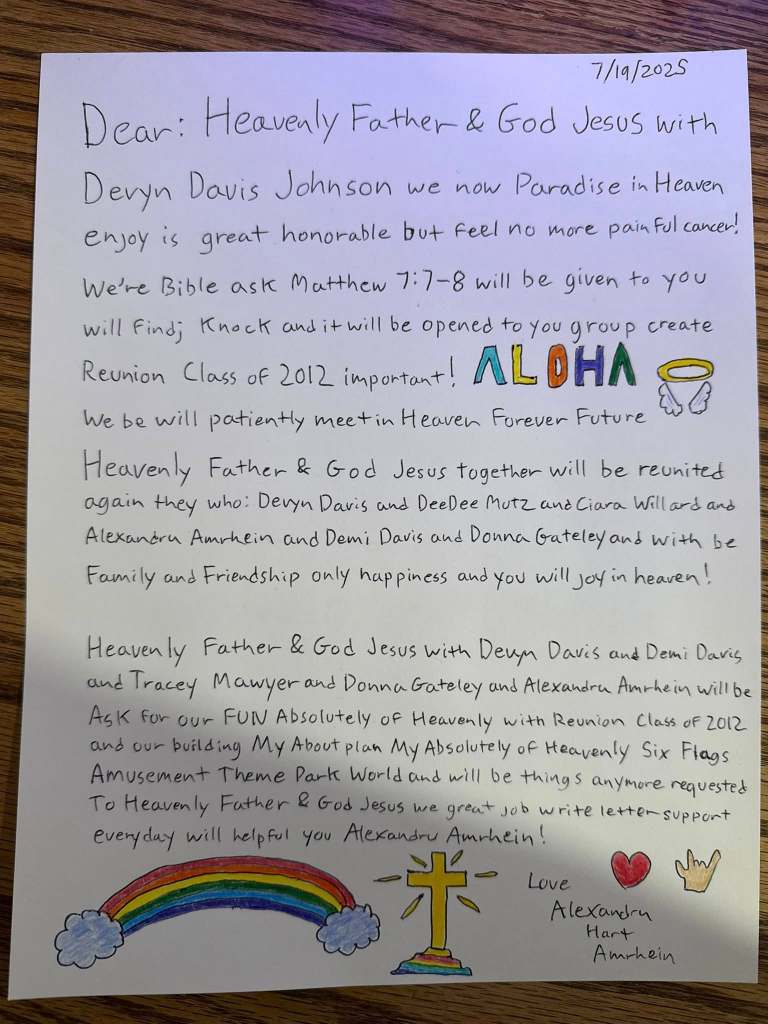 7/19/2025
Dear: Heavenly Father & God Jesus with
Devyn Davis Johnson we now Paradise in Heaven
enjoy is great honorable but feel no more painful cancer!
We're Bible ask Matthew 7:7-8 will be given to you
will find; Knock and it will be opened to you group create
Reunion Class of 2012 important! ALOHA
We be will patiently meet in Heaven Forever Future
Heavenly Father & God Jesus together will be reunited
again they who: Devyn Davis and DeeDee Mutz and Ciara Willard and
Alexandru Amrhein and Demi Davis and Donna Gateley and with be
Family and Friendship only happiness and you will joy in heaven!
Heavenly Father & God Jesus with Devyn Davis and Demi Davis
and Tracey Mawyer and Donna Gateley and Alexandru Amrhein will be
Ask for our FUN Absolutely of Heavenly with Reunion Class of 2012
and our building My About plan My Absolutely of Heavenly Six Flags
Amusement Theme Park World and will be things anymore requested
To Heavenly Father & God Jesus we great job write letter support
everyday will helpful you Alexandru Amrhein!
Love
Alexandru
Hart
Amrhein